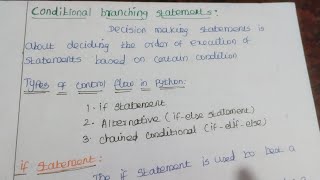 Conditional branching statements:
Decision making statements is
about deciding the order of execution of
statements based on certain condition
Types of control flow in Python:
1. if statement
2. Alternative (if-else statement)
3. chained conditional (if-elif-else)
if statement:
The if statement is used to test a